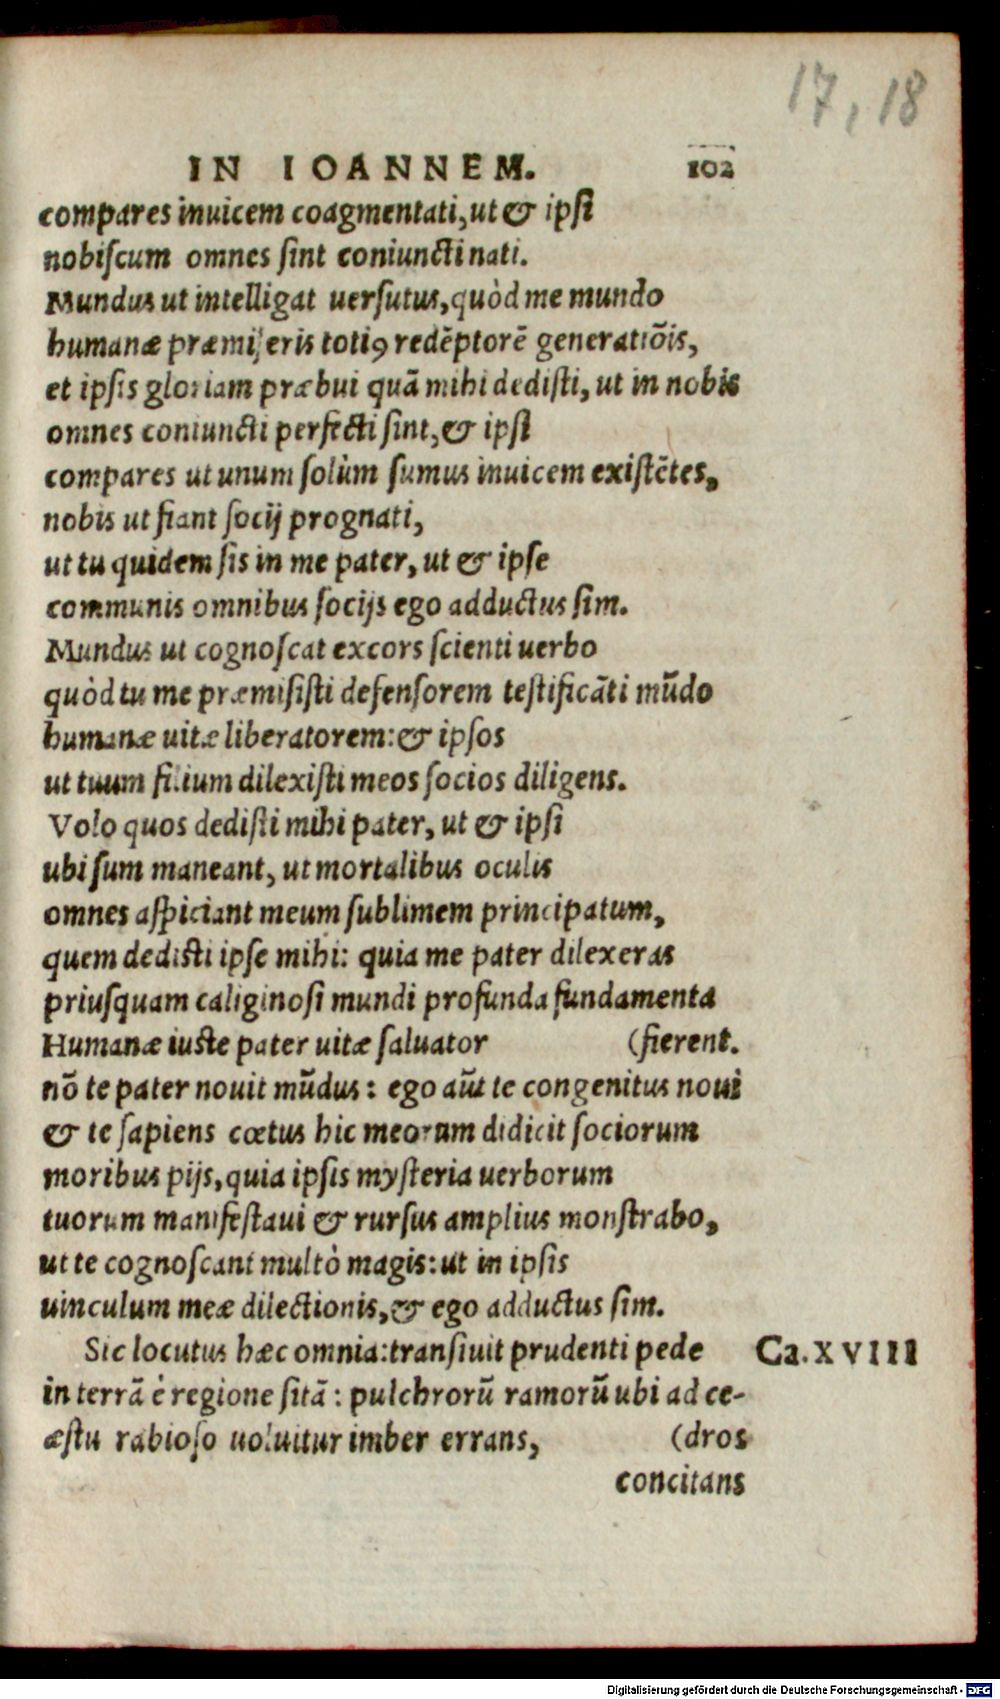 17, 18
IN IOANNEM. 102
compares inuicem coagmentati, ut & ipsi
nobiscum omnes sint coniuncti nati.
Mundus ut intelligat uersutus, quòd me mundo
humanæ præmiseris totiꝰ redẽptorẽ generatiõis,
et ipsis gloriam præbui quã mihi dedisti, ut in nobis
omnes coniuncti perfecti sint, & ipsi
compares ut unum solùm sumus inuicem existẽtes,
nobis ut fiant socij prognati,
ut tu quidem sis in me pater, ut & ipse
communis omnibus socijs ego adductus sim.
Mundus ut cognoscat excors scienti uerbo
quòd tu me præmisisti defensorem testificãti mũdo
humanæ uitæ liberatorem: & ipsos
ut tuum filium dilexisti meos socios diligens.
Volo quos dedisti mihi pater, ut & ipsi
ubi sum maneant, ut mortalibus oculis
omnes aspiciant meum sublimem principatum,
quem dedisti ipse mihi: quia me pater dilexeras
priusquam caliginosi mundi profunda fundamenta
Humanæ iuste pater uitæ saluator (fierent.
nõ te pater nouit mũdus: ego aũt te congenitus noui
& te sapiens cœtus hic meorum didicit sociorum
moribus pijs, quia ipsis mysteria uerborum
tuorum manifestaui & rursus amplius monstrabo,
ut te cognoscant multò magis: ut in ipsis
uinculum meæ dilectionis, & ego adductus sim.
Sic locutus hæc omnia: transiuit prudenti pede Ca. XVIII
in terrã è regione sitã: pulchrorũ ramorũ ubi ad ce-
æstu rabioso uoluitur imber errans, (dros
concitans
Digitalisierung gefördert durch die Deutsche Forschungsgemeinschaft - DFG